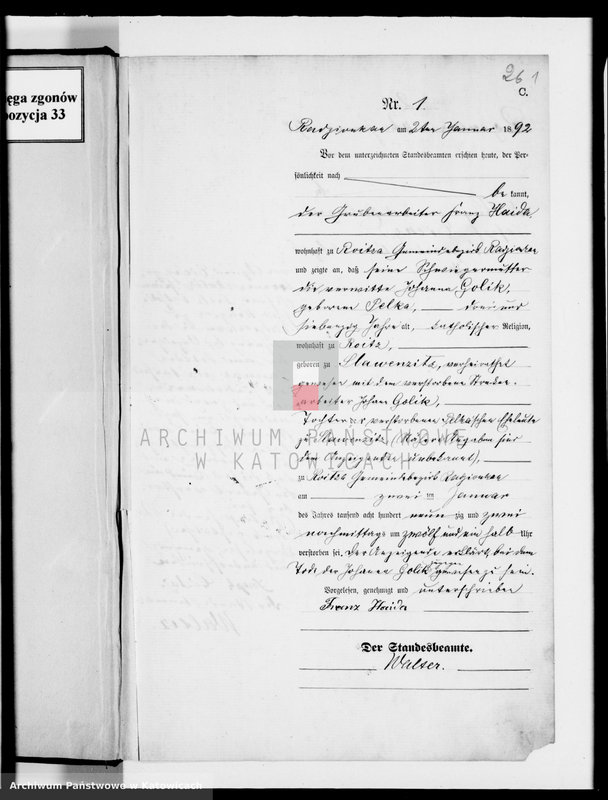 ęga zgonów
pozycja 33
26 1
C.
Nr. 1.
Radzionkau am 2ten Januar 1892
Vor dem unterzeichneten Standesbeamten erschien heute, der Per-
sönlichkeit nach
be kannt,
der Grubenarbeiter Franz Haida
wohnhaft zu Roitza Gemeindebezirk Radzionkau
und zeigte an, daß seine Schwiegermutter
die verwittw. Johanna Golik,
geborene Pelka, drei und
siebenzig Jahre alt, katholischer Religion,
wohnhaft zu Roitz,
geboren zu Slawenzitz, verheirathet
gewesen mit dem verstorbenen
arbeiter Johann Golik,
Tochter der verstorbenen Pelkaschen Eheleute
zu Slawenzitz (Nähere Angaben sind
dem Anzeigenden unbekannt),
zu Roitza Gemeindebezirk Radzionkau
am zwei ten Januar
des Jahres tausend acht hundert neun zig und zwei
nachmittags um zwölf und ein halb Uhr
verstorben sei. Der Anzeigende erklärt, bei dem
Tode der Johanna Golik zugegen gewesen zu sein.
Vorgelesen, genehmigt und unterschrieben
Franz Haida
Der Standesbeamte.
Walser.
ARCHIWUM PAŃSTWOWE
W KATOWICACH
Archiwum Państwowe w Katowicach